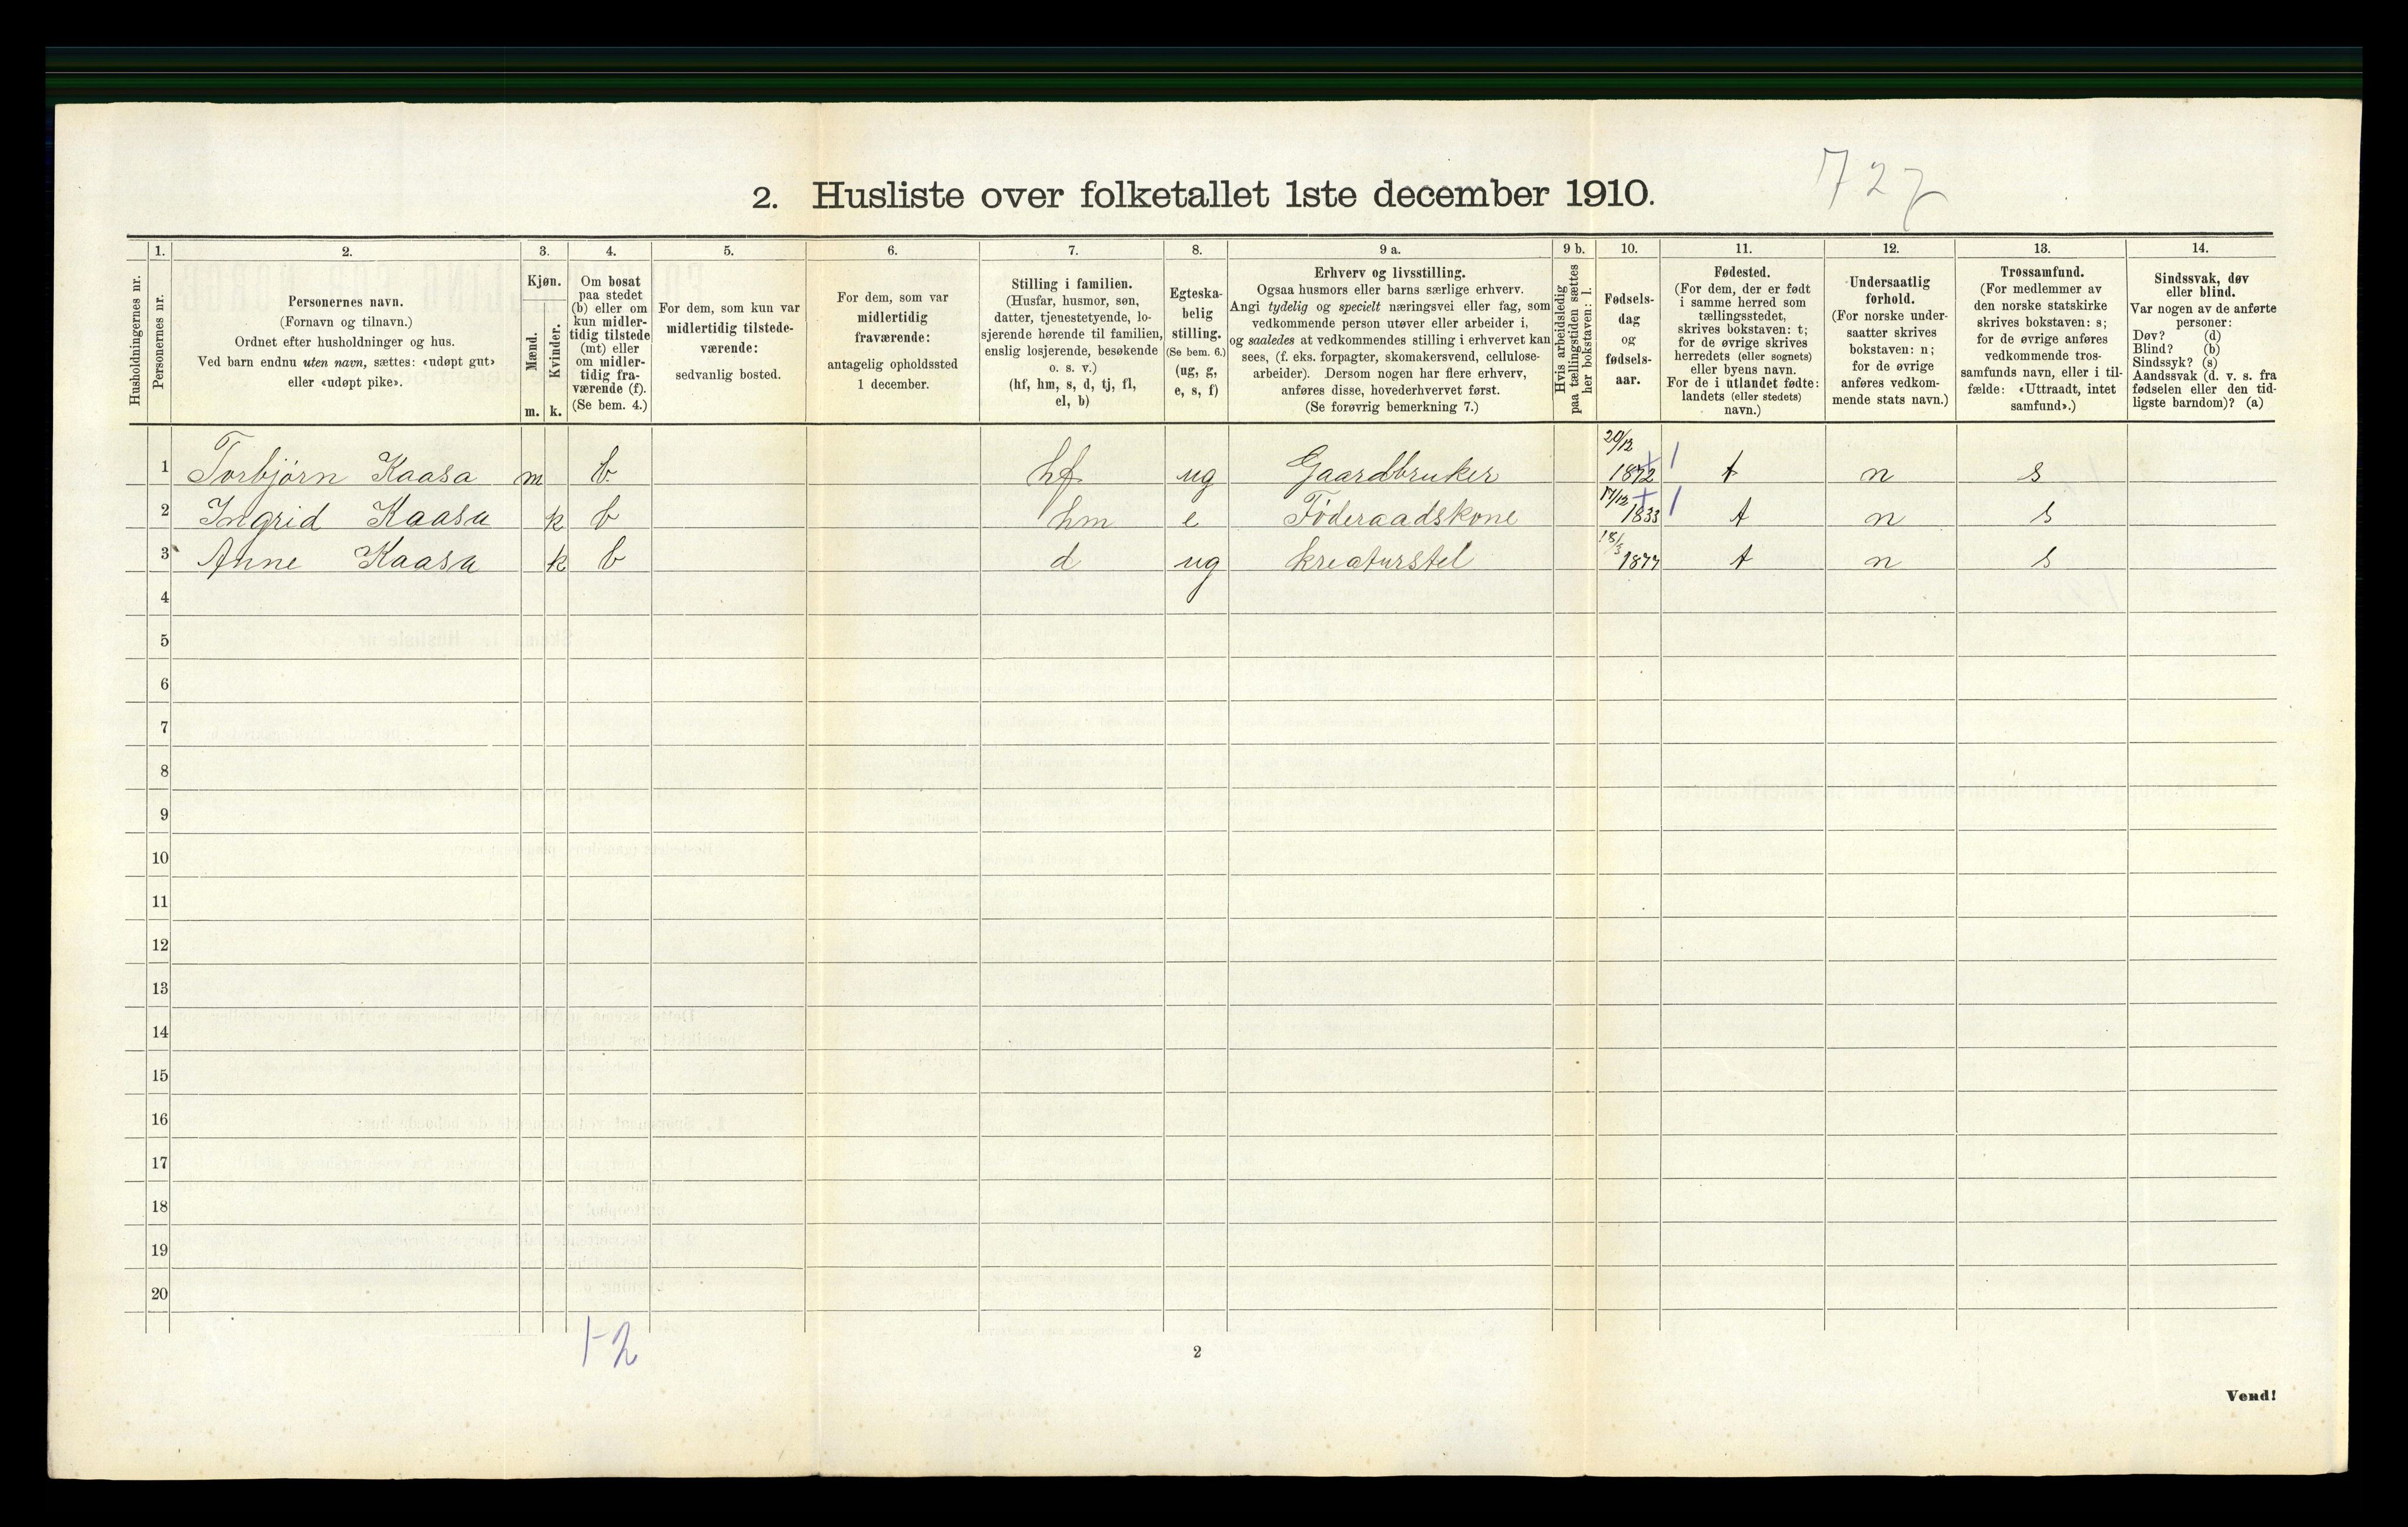 727
2. Husliste over folketallet 1ste december 1910.
Husholdningernes nr.
1.
Personernes nr.
2.
Personernes navn.
(Fornavn og tilnavn.)
Ordnet efter husholdninger og hus.
Ved barn endnu uten navn, sættes: «udøpt gut»
eller «udøpt pike».
3.
Kjøn.
Mænd.
Kvinder.
m. k.
4.
Om bosat
paa stedet
(b) eller om
kun midler-
tidig tilstede
(mt) eller
om midler-
tidig fra-
værende (f).
(Se bem. 4.)
5.
For dem, som kun var
midlertidig tilstede-
værende:
sedvanlig bosted.
6.
For dem, som var
midlertidig
fraværende:
antagelig opholdssted
1 december.
7.
Stilling i familien.
(Husfar, husmor, søn,
datter, tjenestetyende, lo-
sjerende hørende til familien,
enslig losjerende, besøkende
o. s. v.)
(hf, hm, s, d, tj, fl,
el, b)
8.
Egteska-
belig
stilling.
(Se bem. 6.)
(ug, g,
e, s, f)
9 a.
Erhverv og livsstilling.
Ogsaa husmors eller barns særlige erhverv.
Angi tydelig og specielt næringsvei eller fag, som
vedkommende person utøver eller arbeider i,
og saaledes at vedkommendes stilling i erhvervet kan
sees, (f. eks. forpagter, skomakersvend, cellulose-
arbeider). Dersom nogen har flere erhverv,
anføres disse, hovederhvervet først.
(Se forøvrig bemerkning 7.)
9 b.
Hvis arbeidsledig
paa tællingstiden sættes
her bokstaven: l.
10.
Fødsels-
dag
og
fødsels-
aar.
11.
Fødested.
(For dem, der er født
i samme herred som
tællingsstedet,
skrives bokstaven: t;
for de øvrige skrives
herredets (eller sognets)
eller byens navn.
For de i utlandet fødte:
landets (eller stedets)
navn.)
12.
Undersaatlig
forhold.
(For norske under-
saatter skrives
bokstaven: n;
for de øvrige
anføres vedkom-
mende stats navn.)
13.
Trossamfund.
(For medlemmer av
den norske statskirke
skrives bokstaven: s;
for de øvrige anføres
vedkommende tros-
samfunds navn, eller i til-
fælde: «Uttraadt, intet
samfund».)
14.
Sindssvak, døv
eller blind.
Var nogen av de anførte
personer:
Døv? (d)
Blind? (b)
Sindssyk? (s)
Aandssvak (d. v. s. fra
fødselen eller den tid-
ligste barndom)? (a)
1 Torbjørn Kaasa m b hf ug Gaardbruker 20/12 1872 t n s
2 Ingrid Kaasa k b hm e Föderaadskone 17/12 1833 t n s
3 Anne Kaasa k b d ug kreaturstel 18/3 1877 t n s
4
5
6
7
8
9
10
11
12
13
14
15
16
17
18
19
20
1-2
2
Vend!